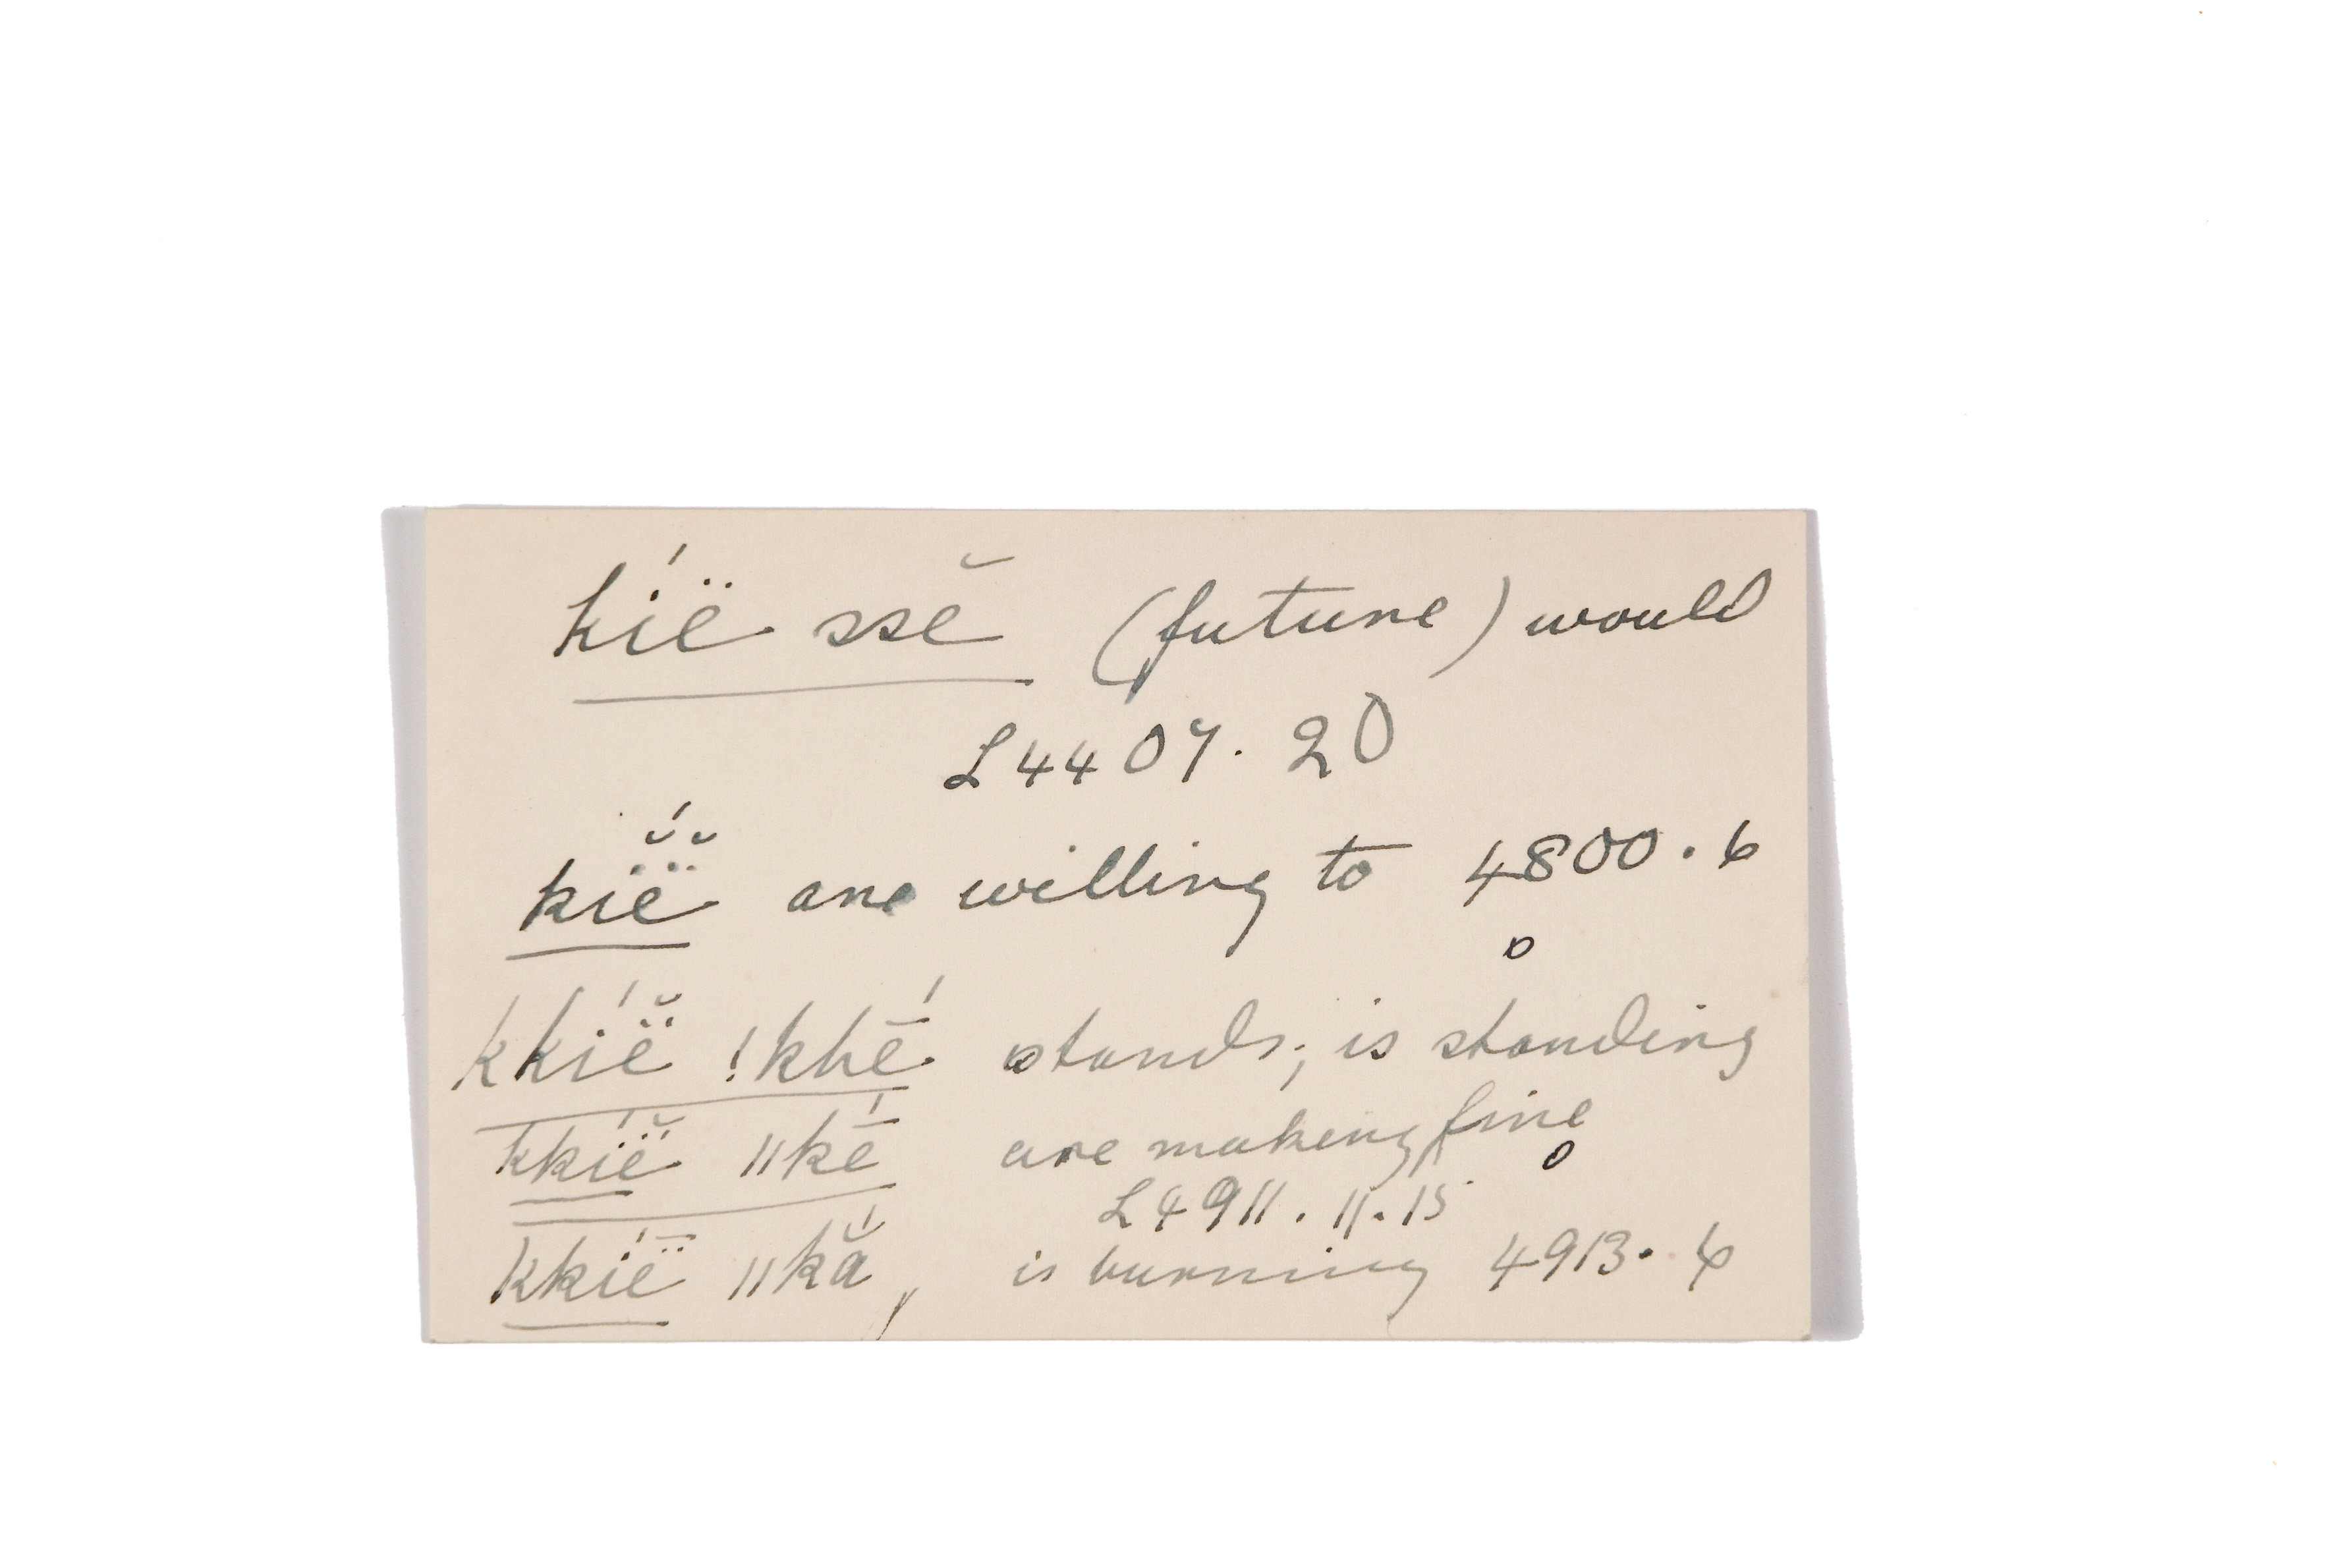 kíë ssĕ (future) would
L4407. 20
kĭ́ë̆ are willing to 4800. 6
kkíë̆ !khḗ stands; is standing
kkíë̆ ||kḗ are making fire
L4911. 11. 15
kkíë̄ ||kắ, is burning 4913. 6